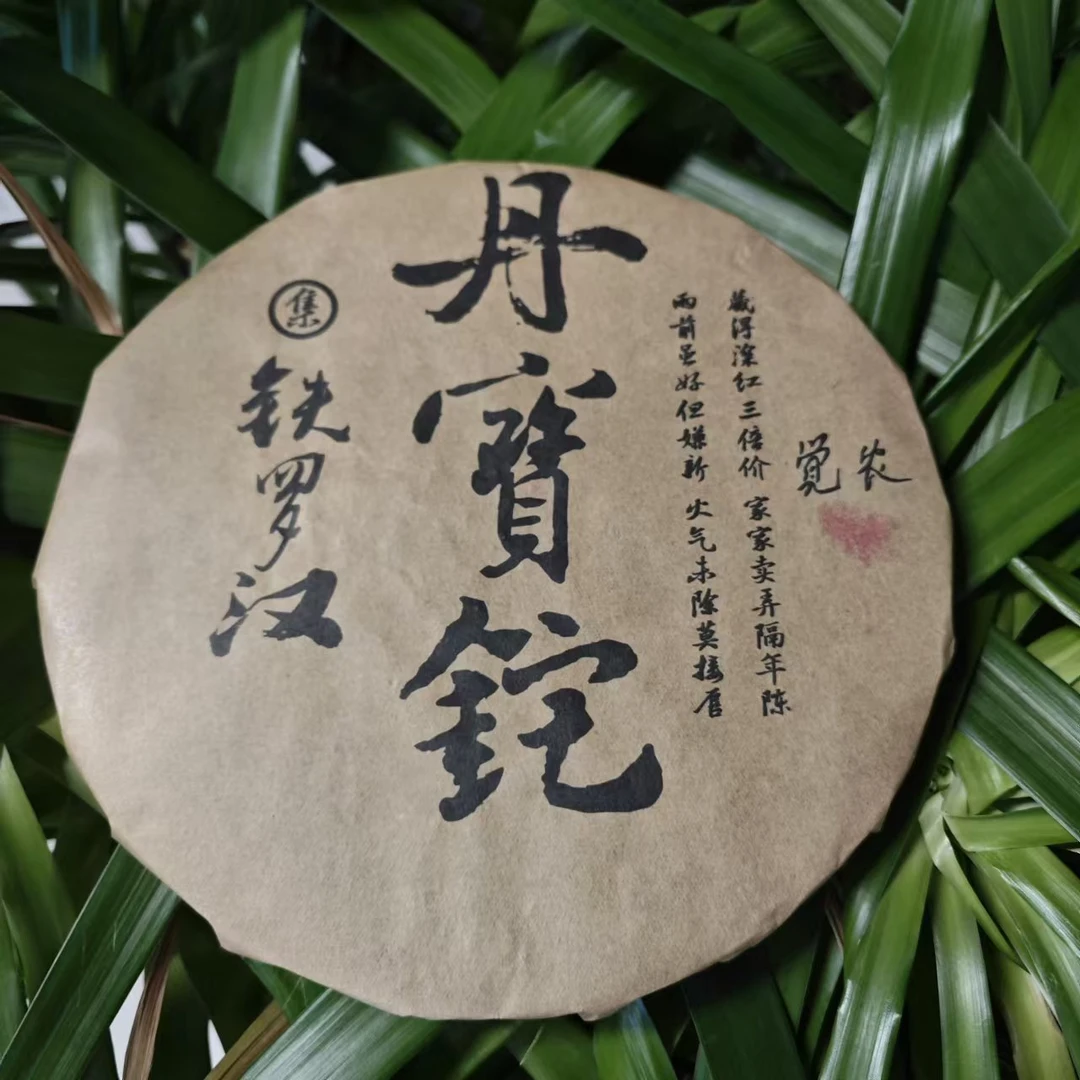 丹寶鉈
集
铁罗汉
雨前虽好但嫌新 火气未除莫接唇
藏得深红三倍价 家家卖弄隔年陈
觉农